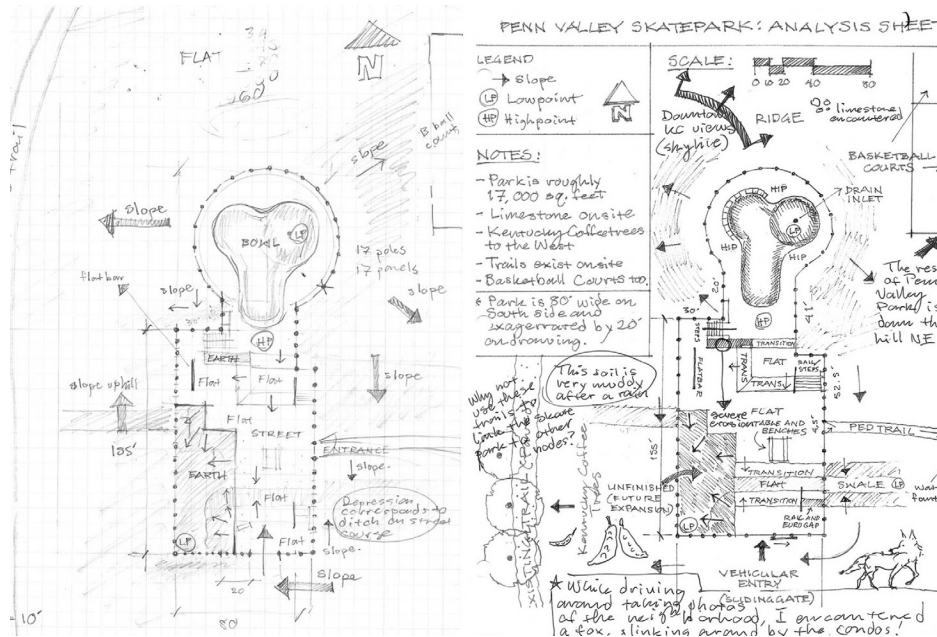 FLAT
60
N
B ball
court
slope
slope
BOWL
LP
17 poles
17 panels
flat bar
slope
slope
HP
EARTH
Flat
Flat
slope
slope uphill
Flat
STREET
155'
ENTRANCE
EARTH
slope.
Flat
Depression
corresponds to
ditch on street
course
Flat
LP
slope.
slope
20'
80'
10'
PENN VALLEY SKATEPARK: ANALYSIS SHEET
LEGEND
slope
LP Lowpoint
HP Highpoint
N
SCALE:
0 10 20 40 80
Downtown
KC views
(skyline)
RIDGE
limestone
encountered
BASKETBALL
COURTS
NOTES:
- Park is roughly
17,000 sq. feet
- Limestone onsite
- Kentucky Coffeetrees
to the West
- Trails exist onsite
- Basketball Courts too.
* Park is 80' wide on
South side and
exagerrated by 20'
on drawing.
HIP
DRAIN
INLET
LP
HIP
HIP
The res
of Penn
Valley
Park is
down the
hill NE
20'
30'
41'
HP
STEPS
TRANSITION
FLATBAR
TRANS
FLAT
TRANS
RAIL/
STEPS
52.5'
This soil is
very muddy
after a rain
Why not
use these
trails to
link the skate
park to other
nodes?
severe
erosion
FLAT
TABLE AND
BENCHES
45'
PED TRAIL
155'
TRANSITION
FLAT
TRANSITION
SWALE LP
UNFINISHED
(FUTURE
EXPANSION)
RAIL AND
EUROGAP
LP
EXISTING TRAIL
Kentucky Coffee
Trees
VEHICULAR
ENTRY
(SLIDING GATE)
* While driving
around taking photos
of the neighborhood, I encountered
a fox, slinking around by the condos!